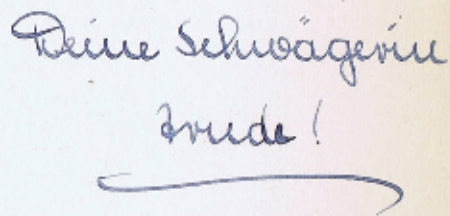 Deine Schwägerin
Trude!